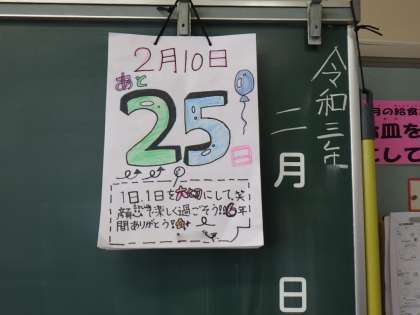 2月10日
あと
25
日
1日、1日を大切にして、笑
顔で楽しく過ごそう!!6年
間ありがとう!!
令和三年
二月
日
月の給食
血を
にして